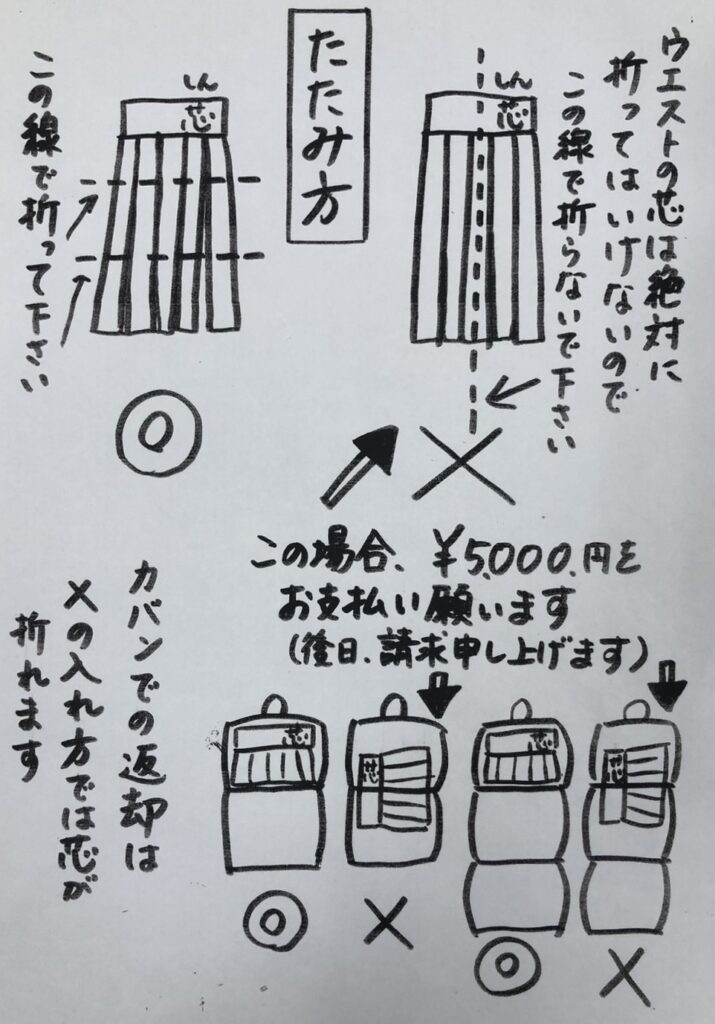 たたみ方
ウエストの芯は絶対に
折ってはいけないので
この線で折らないで下さい
しん
芯
×
しん
芯
この線で折って下さい
◎
この場合、¥5,000.円を
お支払い願います
(後日、請求申し上げます)
カバンでの返却は
×の入れ方では芯が
折れます
芯
芯
芯
芯
◎
×
◎
×